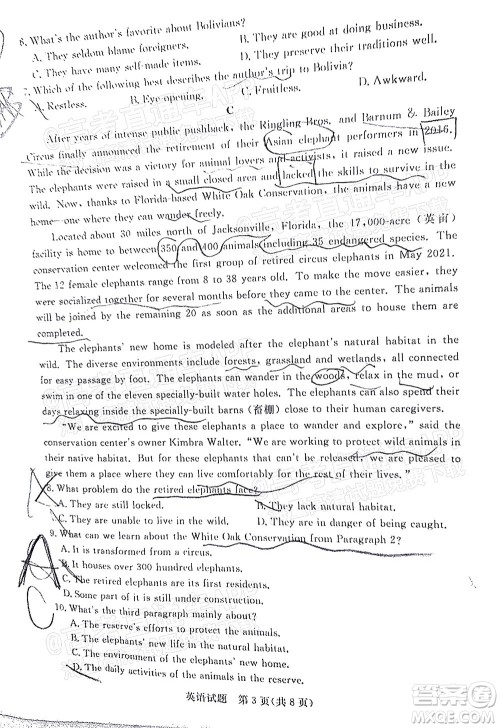 6. What's the author's favorite about Bolivians?
A. They seldom blame foreigners. B. They are good at doing business.
C. They have many self-made items. D. They preserve their traditions well.
7. Which of the following best describes the author's trip to Bolivia?
A. Restless. B. Eye-opening. C. Fruitless. D. Awkward.
C
After years of intense public pushback, the Ringling Bros. and Barnum & Bailey
Circus finally announced the retirement of their Asian elephant performers in 2016.
While the decision was a victory for animal lovers and activists, it raised a new issue.
The elephants were raised in a small closed area and lacked the skills to survive in the
wild. Now, thanks to Florida-based White Oak Conservation, the animals have a new
home—one where they can wander freely.
Located about 30 miles north of Jacksonville, Florida, the 17,000-acre (英亩)
facility is home to between 350 and 400 animals including 35 endangered species. The
conservation center welcomed the first group of retired circus elephants in May 2021.
The 12 female elephants range from 8 to 38 years old. To ensure they got along, they
were socialized together for several months before heading to the center. The animals
will be joined by the remaining 20 as soon as the additional areas to house them are
completed.
The elephants' new home is modeled after the elephant's natural habitat in the
wild. The diverse environments include forests, grassland and wetlands, all connected
for easy passage by foot. The elephants can wander in the woods, relax in the mud, or
swim in one of the eleven specially-built water holes. They can also choose to spend their
days relaxing inside the specially-built barns (畜棚) or close to their human caregivers.
"We are excited to give the elephants a place to wander and explore," said the
conservation center's owner Kimbra Walter. "We are working to protect wild animals in
their native habitat. But for these elephants that can't be released, we are pleased to
give them a place they can live comfortably for the rest of their lives."
8. What problem do the retired elephants face?
A. They are still locked. B. They lack natural habitat.
C. They are unable to live in the wild. D. They are in danger of being caught.
9. What can we learn about the White Oak Conservation from Paragraph 2?
A. It is transformed from a circus.
B. It houses over 300 hundred elephants.
C. The retired elephants are its first residents.
D. Some part of it is still under construction.
10. What's the third paragraph mainly about?
A. The reserve's efforts to protect the animals.
B. The elephants' new life in the natural habitat.
C. The elephants' new home and life in the reserve.
D. The daily activities of the animals in the reserve.
英语试题 第3页(共8页)